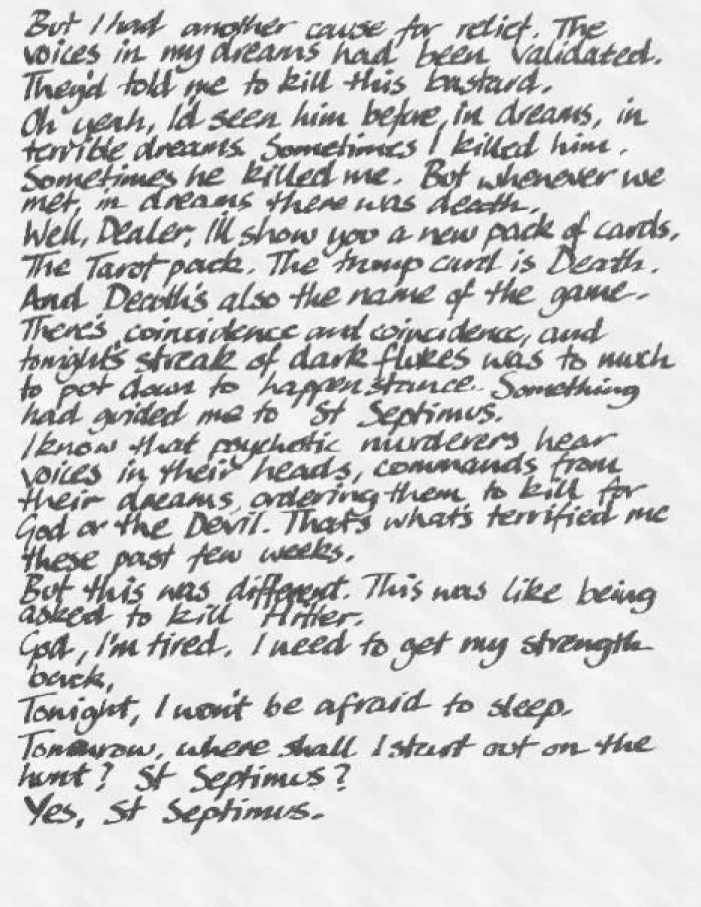 But I had another cause for relief. The
voices in my dreams had been validated.
They'd told me to kill this bastard.
Oh yeah, I'd seen him before, in dreams, in
terrible dreams. Sometimes I killed him.
Sometimes he killed me. But whenever we
met, in dreams there was death.
Well, Dealer, I'll show you a new pack of cards.
The Tarot pack. The trump card is Death.
And Death's also the name of the game.
There's coincidence and coincidence, and
tonight's streak of dark flukes was to much
to put down to happenstance. Something
had guided me to St Septimus.
I know that psychotic murderers hear
voices in their heads, commands from
their dreams, ordering them to kill for
God or the Devil. That's what's terrified me
these past few weeks.
But this was different. This was like being
asked to kill Hitler.
God, I'm tired. I need to get my strength
back,
Tonight, I won't be afraid to sleep.
Tomorrow, where shall I start out on the
hunt? St Septimus?
Yes, St Septimus.